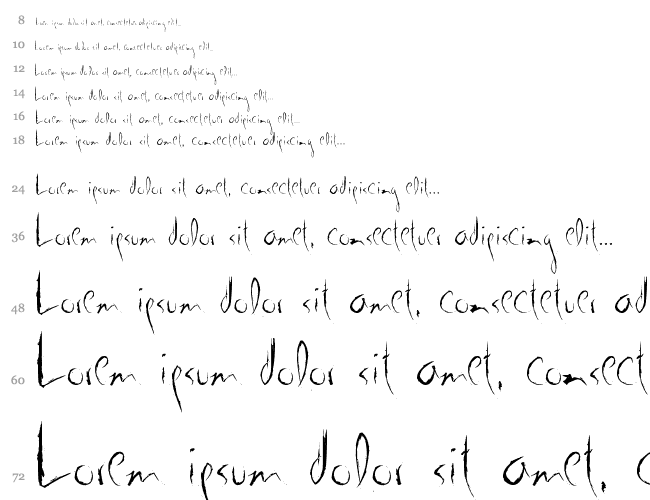 8 Lorem ipsum dolor sit amet, consectetuer adipiscing elit...
10 Lorem ipsum dolor sit amet, consectetuer adipiscing elit...
12 Lorem ipsum dolor sit amet, consectetuer adipiscing elit...
14 Lorem ipsum dolor sit amet, consectetuer adipiscing elit...
16 Lorem ipsum dolor sit amet, consectetuer adipiscing elit...
18 Lorem ipsum dolor sit amet, consectetuer adipiscing elit...
24 Lorem ipsum dolor sit amet, consectetuer adipiscing elit...
36 Lorem ipsum dolor sit amet, consectetuer adipiscing elit...
48 Lorem ipsum dolor sit amet, consectetuer ad
60 Lorem ipsum dolor sit amet, consect
72 Lorem ipsum dolor sit amet, c